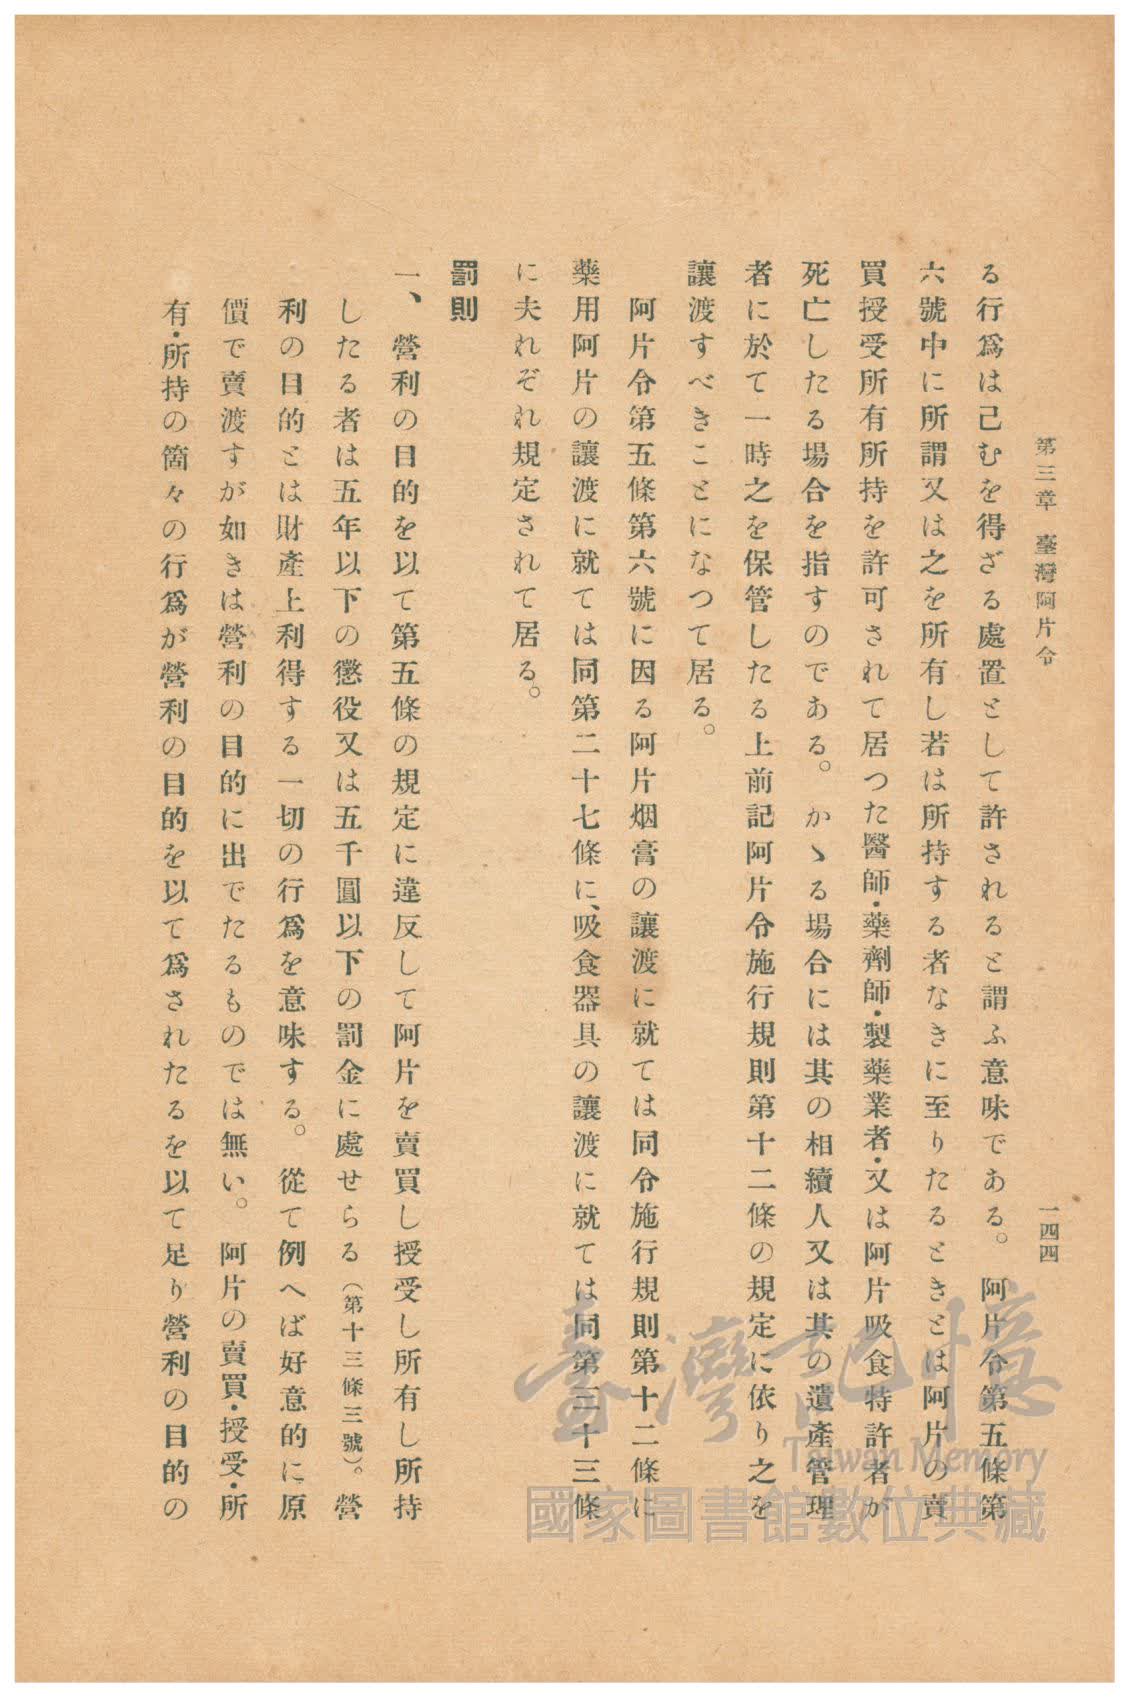 第三章　臺灣阿片令
一四四
る行爲は己むを得ざる處置として許されると謂ふ意味である。阿片令第五條第
六號中に所謂又は之を所有し若は所持する者なきに至りたるときとは阿片の賣
買授受所有所持を許可されて居つた醫師・藥劑師・製藥業者・又は阿片吸食特許者が
死亡したる場合を指すのである。かゝる場合には其の相續人又は其の遺產管理
者に於て一時之を保管したる上前記阿片令施行規則第十二條の規定に依り之を
讓渡すべきことになつて居る。
阿片令第五條第六號に因る阿片烟膏の讓渡に就ては同令施行規則第十二條に
藥用阿片の讓渡に就ては同第二十七條に、吸食器具の讓渡に就ては同第三十三條
に夫れぞれ規定されて居る。
罰則
一、營利の目的を以て第五條の規定に違反して阿片を賣買し授受し所有し所持
したる者は五年以下の懲役又は五千圓以下の罰金に處せらる（第十三條三號）。營
利の目的とは財產上利得する一切の行爲を意味する。從て例へば好意的に原
價で賣渡すが如きは營利の目的に出でたるものでは無い。阿片の賣買・授受・所
有・所持の箇々の行爲が營利の目的を以て爲されたるを以て足り營利の目的の
臺灣記憶
Taiwan Memory
國家圖書館數位典藏